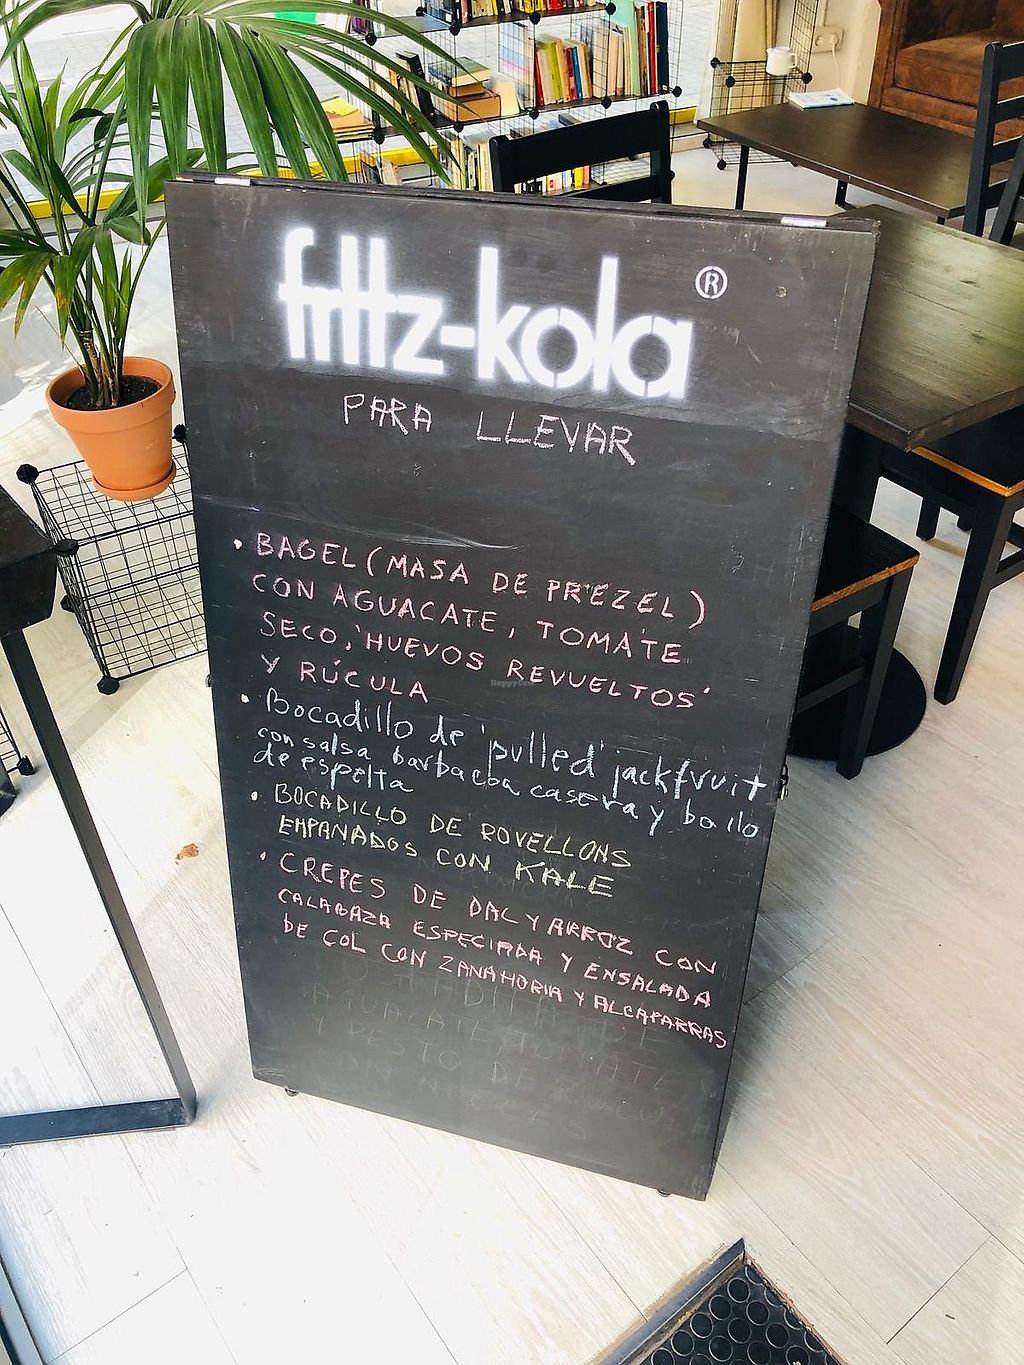 fritz-kola ®
PARA LLEVAR
• BAGEL (MASA DE PREZEL)
CON AGUACATE, TOMATE
SECO, 'HUEVOS REVUELTOS'
Y RÚCULA
• Bocadillo de 'pulled' jackfruit
con salsa barbacoa casera y bollo
de espelta
• BOCADILLO DE ROVELLONS
EMPANADOS CON KALE
• CREPES DE DAL Y ARROZ CON
CALABAZA ESPECIADA Y ENSALADA
DE COL CON ZANAHORIA Y ALCAPARRAS
AGUACATE, TOMATE
Y PESTO DE